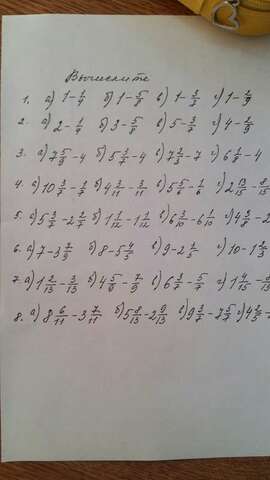 Вычислите
1. а) 1 - 1/4 б) 1 - 5/8 в) 1 - 3/5 г) 1 - 2/9
2. а) 2 - 1/4 б) 3 - 5/8 в) 5 - 3/7 г) 4 - 2/9
3. а) 7 5/9 - 4 б) 5 3/7 - 4 в) 7 2/3 - 7 г) 6 1/8 - 4
4. а) 10 3/7 - 2/7 б) 4 3/11 - 3/11 в) 5 5/6 - 1/6 г) 2 13/15 - 8/15
5. а) 5 3/7 - 2 2/7 б) 1 1/12 - 1 1/12 в) 6 3/10 - 6 1/10 г) 4 5/8 - 2
6. а) 7 - 3 7/9 б) 8 - 5 4/5 в) 9 - 2 1/5 г) 10 - 1
7. а) 1 2/13 - 3/13 б) 4 5/9 - 7/9 в) 6 3/7 - 5/7 г) 1 4/15 -
8. а) 8 6/11 - 3 7/11 б) 5 8/13 - 2 9/13 в) 9 3/7 - 7 5/7 г) 4 2/5 -